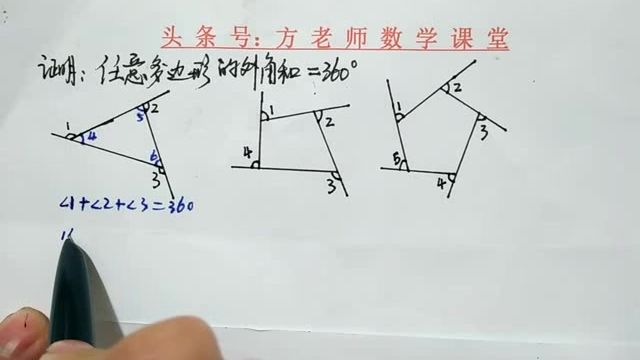 头条号：方老师数学课堂
证明：任意多边形的外角和=360°
1 4 5 2 6 3
1 2 3 4
1 2 3 4 5
∠1+∠2+∠3=360